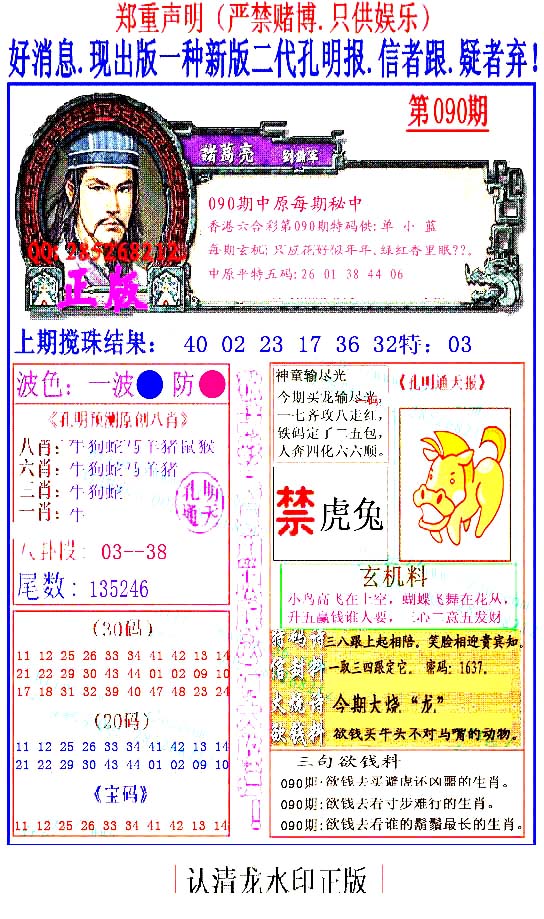 郑重声明（严禁赌博.只供娱乐）
好消息.现出版一种新版二代孔明报.信者跟.疑者弃！
第090期
諸葛亮
QQ:285268212
正版
090期中原每期秘中
香港六合彩第090期特码供: 单 小 蓝
每期玄机: 只应花好似年年、绿红香里眠??。
中原平特五码: 26 01 38 44 06
上期搅珠结果： 40 02 23 17 36 32特：03
波色：一波 防
《孔明预测原创八肖》
八肖：牛狗蛇马羊猪鼠猴
六肖：牛狗蛇马羊猪
三肖：牛狗蛇
一肖：牛
孔明通天
八卦段：03--38
尾数：135246
（30码）
11 12 25 26 33 34 41 42 13 14
21 22 29 30 43 44 01 02 09 10
17 18 31 32 39 40 47 48 23 24
（20码）
11 12 25 26 33 34 41 42 13 14
21 22 29 30 43 44 01 02 09 10
《宝码》
11 12 25 26 33 34 41 42 13 14
神童输尽光
今期买龙输尽光，
一七齐攻八走红，
铁码定了二五包，
人奔四化六六顺。
《孔明通天报》
禁 虎兔
玄机料
小鸟高飞在上空，蝴蝶飞舞在花丛，
升五赢钱谁人要，二心二意五发财
三八跟上起相陪。笑脸相迎贵宾知。
一取三四跟定它。 密码：1637。
今期大烧“龙”
欲钱料 欲钱买牛头不对马嘴的动物。
三句欲钱料
090期:欲钱去买避虎还凶噩的生肖。
090期:欲钱去看寸步难行的生肖。
090期:欲钱去看谁的鬍鬚最长的生肖。
认清龙水印正版